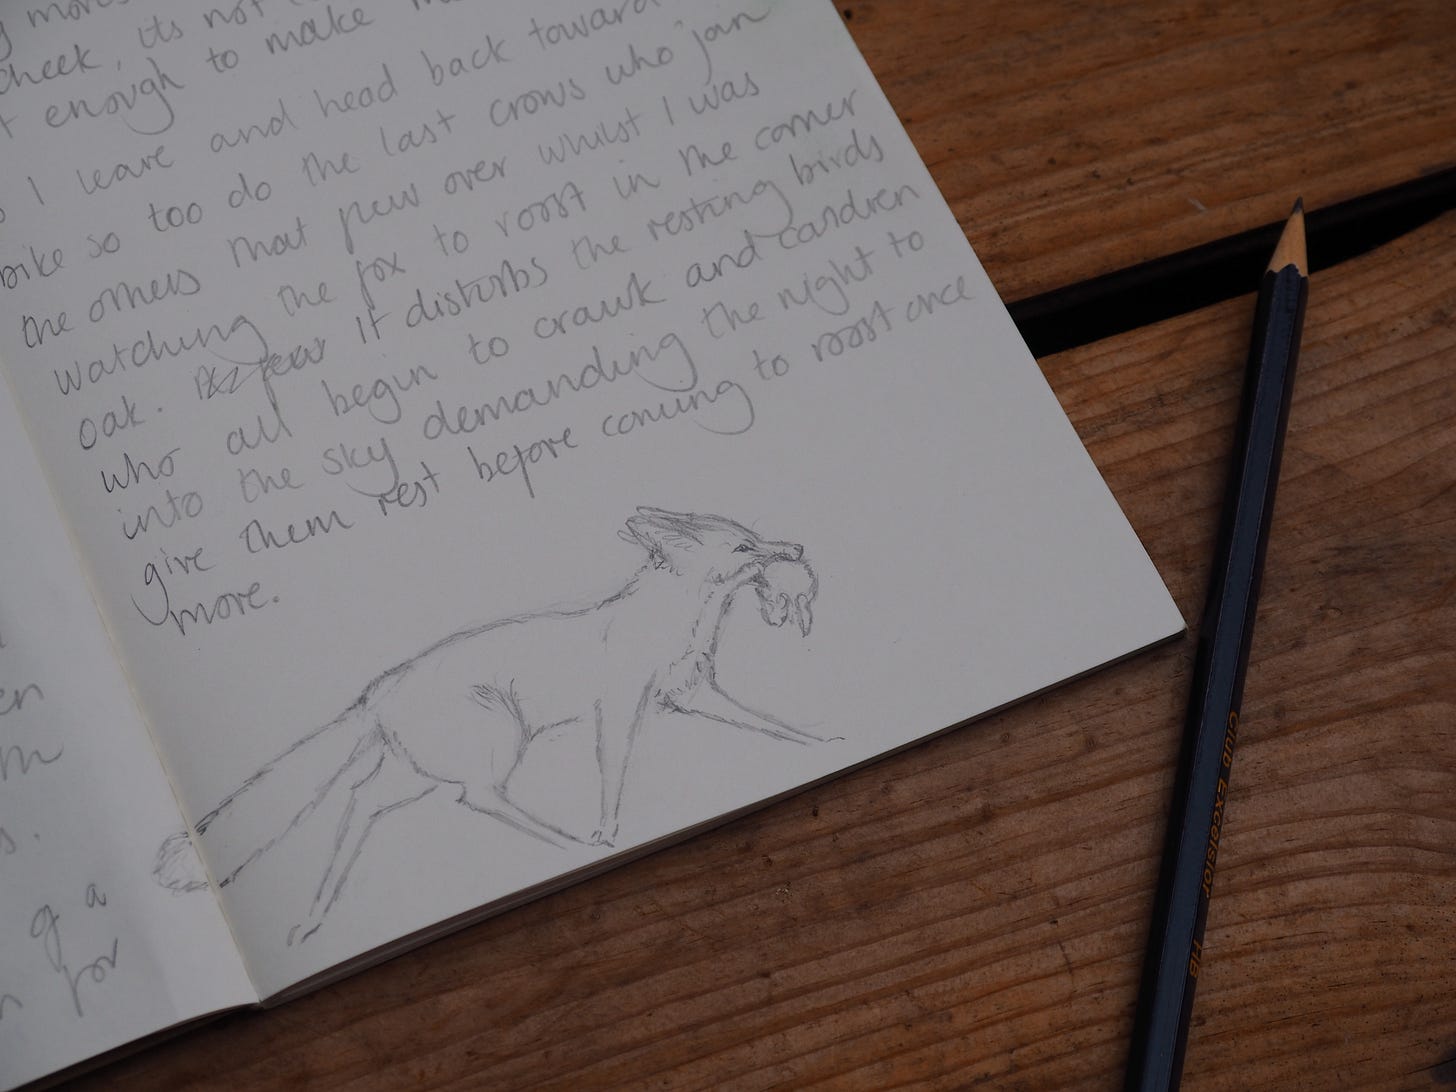 cheek, its not
enough to make
I leave and head back toward
bike so too do the last crows who join
the others that flew over whilst I was
watching the fox to roost in the corner
oak. It disturbs the resting birds
who all begin to crawk and
into the sky demanding the night to
give them rest before coming to roost once
more.
g a
for
Club Excelsior HB